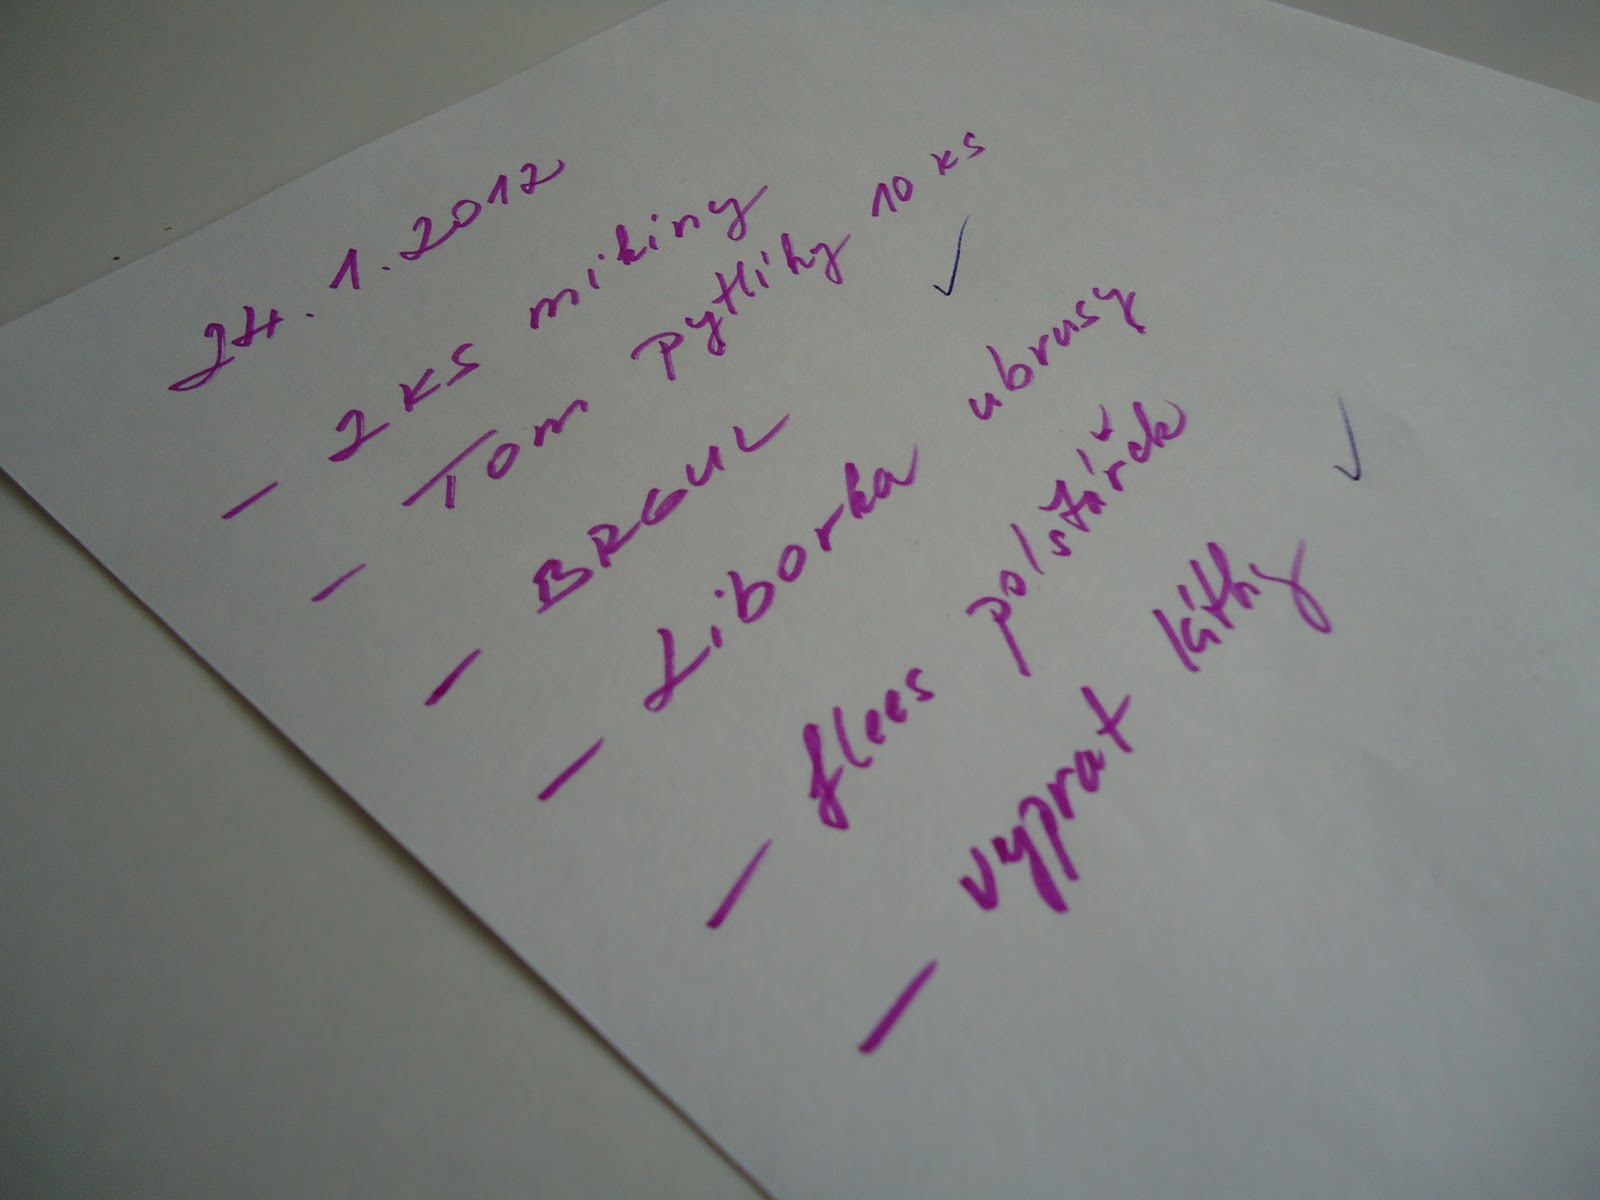 24.1.2012
- 2 KS mikiny
- Tom pytlíky 10 KS
- BRGUL ✓
- Liborka ubrusy
- flees polštářek
- vyprat látky ✓